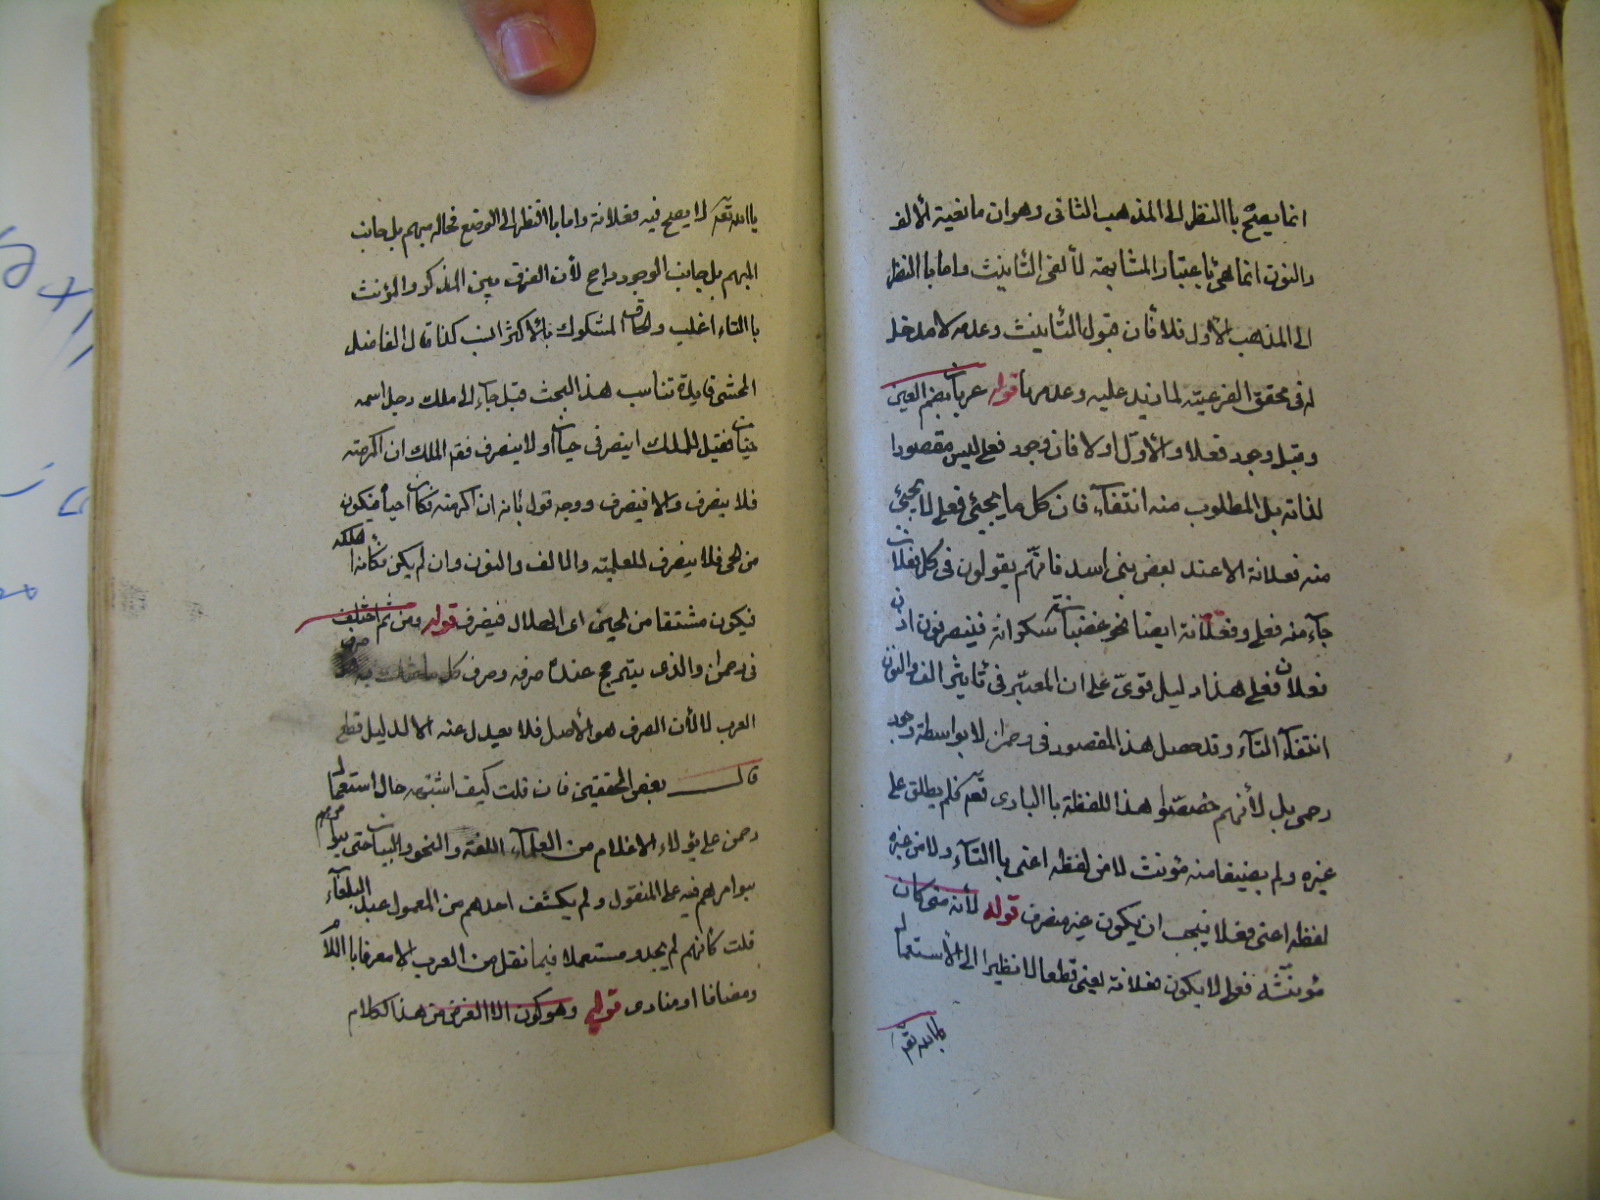 انما يصح باالنظر الى المذهب الثانى وهوان مانعية الألف
والنون انما هى باعتبار المشابهة لألفى التأنيث واما باالنظر
الى المذهب الأول فلا فان قبول التأنيث وعدمه لا مدخل
له فى تحقق الفرعية لما زيد عليه وعدمها قوله عريان بضم العين
وقيل وجود فعلا والأول اولا فان وجود فعلى ليس مقصودا
لذاته بل المطلوب منه انتفآء فان كل ما يجئى فعلى لا يجئى
منه فعلانة الا عند بعض بنى اسد فانهم يقولون فى كل فعلان
جآء منه فعلى وفعلانة ايضا نحو غضبانة سكرانة فينصرفون اذن
فعلان فعلى هذا دليل قوى على ان المعتبر فى تأيثر الف والنون
انتفآء التآء وقد حصل هذا المقصود فى رحمان لا بواسطة وجود
رحمى بل لأنهم خصصوا هذا اللفظة باالبارى تعم فلم يطلق على
غيره ولم يضيقا منه مؤنث لا من لفظه اعنى باالتآء ولا من غيره
لفظه اعنى فعلا فيجب ان يكون غير منصرف قوله لأنه متى كان
مؤنثه فعلى لا يكون فعلانة يعنى قطعا لا نظيرا الى الأستعمال
باالله تعم
باالله تعم لا يصح فيه فعلانة واما باالنظر الى الوضع فحاله مبهم بل جانب
المبهم بل جانب الوجود راجح لأن الفرق بين المذكر والمؤنث
باالتاء اغلب ولحاق المشكوك بالأكثر انسب كذا قال الفاضل
المحشى فايدة تناسب هذا البحث قيل جآء الى ملك رجل اسمه
حيان فقيل للملك اينصرف حيان اولا ينصرف فقم الملك ان اكرمته
فلا ينصرف والا فينصرف ووجه قول بانه ان اكرمته فكان احياه فيكون
من الحى فلا ينصرف للعلمية والالف والنون وان لم يكن فكانه اهلكه
فيكون مشتقا من الحين اى الهلال فيصرف قوله ومن ثم اختلف
فى رحمن والذى يترجح عنده صرفه وصرف كل
العرب لا لأن الصرف هو الأصل فلا يعدل عنه الا لدليل قطع
قال بعض المحققين فان قلت كيف اشتبه حال استعمال
رحمن على هؤلاء الاعلام من العلمآء اللغة والنحو والبيان حتى
فيه على المنقول ولم يكشف احدهم من المعمول عبد البلغآء
قلت كانهم لم يجدو مستعملا فيما نقل من العرب الا معرفا باالام
ومضافا او منادى قوله وهو كون الا الغرض من هذا الكلام